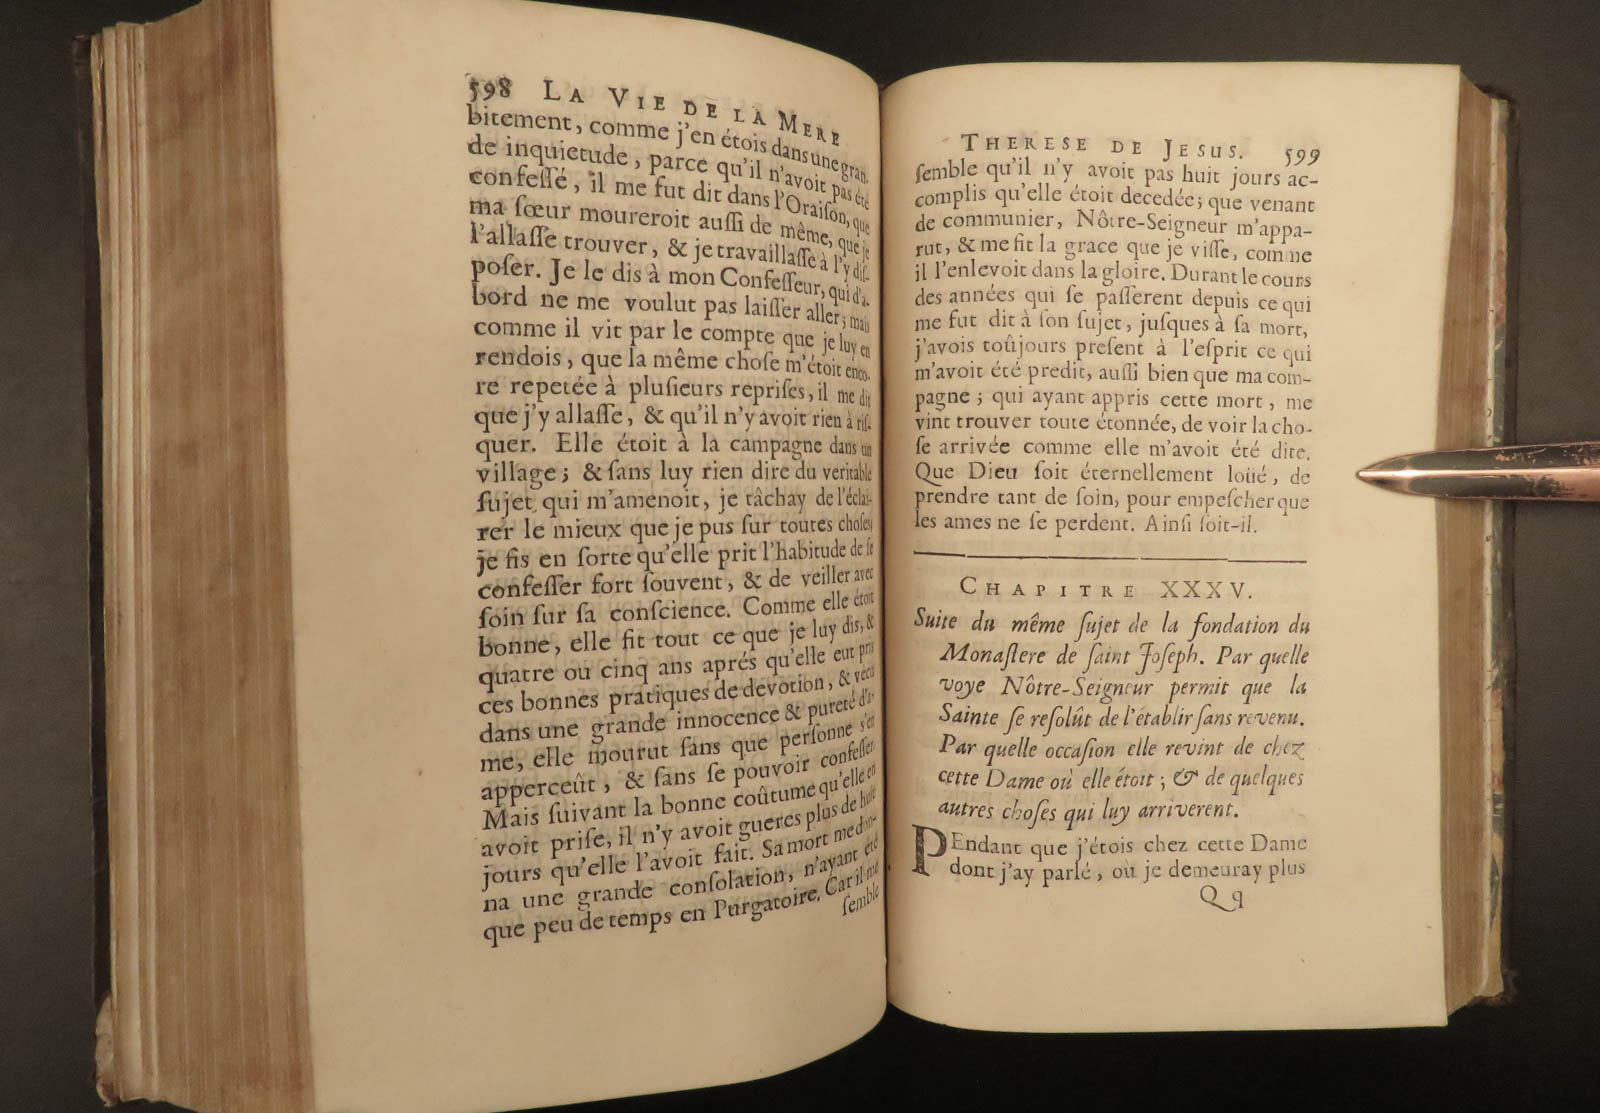 598 LA VIE DE LA MERE
bitement, comme j'en étois dans une gran-
de inquietude, parce qu'il n'avoit pas été
confeſſé, il me fut dit dans l'Oraiſon, que
ma ſœur moureroit auſſi de même, que je
l'allaſſe trouver, & je travaillaſſe à l'y diſ-
poſer. Je le dis à mon Confeſſeur, qui d'a-
bord ne me voulut pas laiſſer aller; mais
comme il vit par le compte que je luy en
rendois, que la même choſe m'étoit enco-
re repetée à pluſieurs repriſes, il me dit
que j'y allaſſe, & qu'il n'y avoit rien à riſ-
quer. Elle étoit à la campagne dans un
village; & ſans luy rien dire du veritable
ſujet qui m'amenoit, je tâchay de l'éclai-
rer le mieux que je pus ſur toutes choſes;
je fis en ſorte qu'elle prit l'habitude de ſe
confeſſer fort ſouvent, & de veiller avec
ſoin ſur ſa conſcience. Comme elle étoit
bonne, elle fit tout ce que je luy dis, &
quatre ou cinq ans aprés qu'elle eut pris
ces bonnes pratiques de devotion, & vécu
dans une grande innocence & pureté d'a-
me, elle mourut ſans que perſonne s'en
apperceût, & ſans ſe pouvoir confeſſer.
Mais ſuivant la bonne coûtume qu'elle en
avoit priſe, il n'y avoit gueres plus de huit
jours qu'elle l'avoit fait. Sa mort me don-
na une grande conſolation, n'ayant été
que peu de temps en Purgatoire. Car il me
ſemble
THERESE DE JESUS. 599
ſemble qu'il n'y avoit pas huit jours ac-
complis qu'elle étoit decedée; que venant
de communier, Nôtre-Seigneur m'appa-
rut, & me fit la grace que je viſſe, comme
il l'enlevoit dans la gloire. Durant le cours
des années qui ſe paſſerent depuis ce qui
me fut dit à ſon ſujet, juſques à ſa mort,
j'avois toûjours preſent à l'eſprit ce qui
m'avoit été predit, auſſi bien que ma com-
pagne; qui ayant appris cette mort, me
vint trouver toute étonnée, de voir la cho-
ſe arrivée comme elle m'avoit été dite.
Que Dieu ſoit éternellement loüé, de
prendre tant de ſoin, pour empeſcher que
les ames ne ſe perdent. Ainſi ſoit-il.
CHAPITRE XXXV.
Suite du même ſujet de la fondation du
Monaſtere de ſaint Joſeph. Par quelle
voye Nôtre-Seigneur permit que la
Sainte ſe reſolût de l'établir ſans revenu.
Par quelle occaſion elle revint de chez
cette Dame où elle étoit; & de quelques
autres choſes qui luy arriverent.
PEndant que j'étois chez cette Dame
dont j'ay parlé, où je demeuray plus
Qq